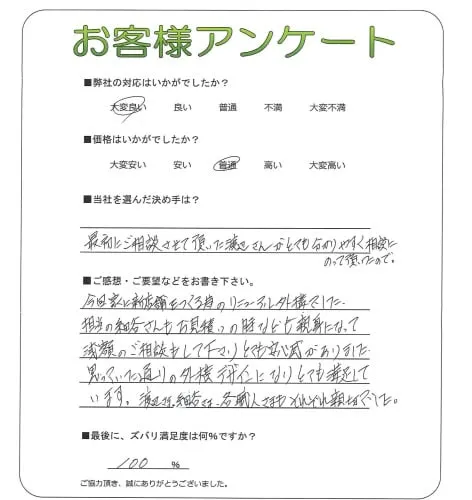 お客様アンケート
■弊社の対応はいかがでしたか？
大変良い 良い 普通 不満 大変不満
■価格はいかがでしたか？
大変安い 安い 普通 高い 大変高い
■当社を選んだ決め手は？
最初にご相談させて頂いた渡辺さんがとても分かりやすく相談に
のって頂いたので。
■ご感想・ご要望などをお書き下さい。
今回家に新店舗をつくる為のリニューアル外構でした。
担当の細谷さんもお見積りの時なども親身になって
減額のご相談もして下さりとても安心感がありました。
思っていた通りの外構デザインになりとても満足して
います。渡辺さま、細谷さま、各職人さまもそれぞれ親切でした。
■最後に、ズバリ満足度は何％ですか？
100 ％
ご協力頂き、誠にありがとうございました。